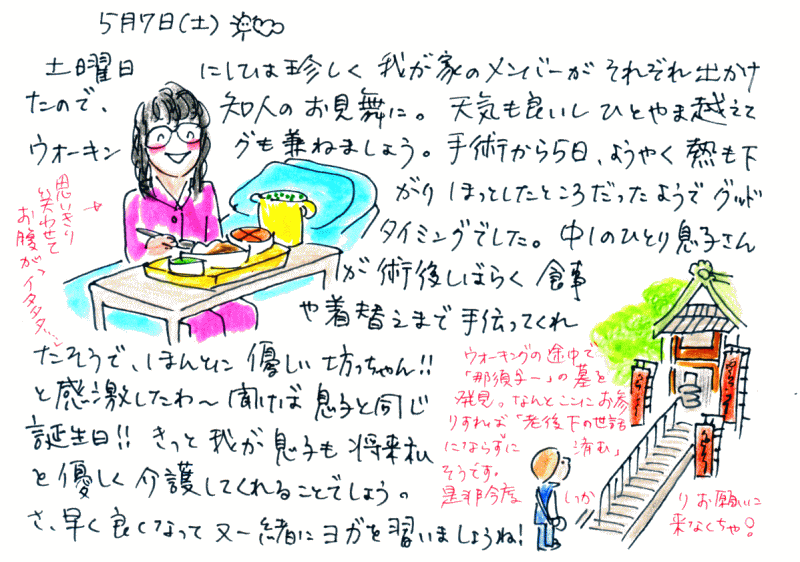 5月7日(土)
土曜日にしては珍しく我が家のメンバーがそれぞれ出かけ
たので、知人のお見舞に。天気も良いしひとやま越えて
ウォーキングも兼ねましょう。手術から5日、ようやく熱も下
がりほっとしたところだったようでグッド
タイミングでした。中1のひとり息子さん
が術後しばらく食事
や着替えまで手伝ってくれ
たそうで、ほんとに優しい坊っちゃん!!
と感激したわ〜聞けば息子と同じ
誕生日!!きっと我が息子も将来私
を優しく介護してくれることでしょう。
さ、早く良くなって又一緒にヨガを習いましょうね!
思いきり
笑わせて
お腹がイタタタ…
ウォーキングの途中で
「那須与一」の墓を
発見。なんとここにお参
りすれば「老後下の世話
にならずに済む」
そうです。
是非今度しっかりお願いに
来なくちゃ!